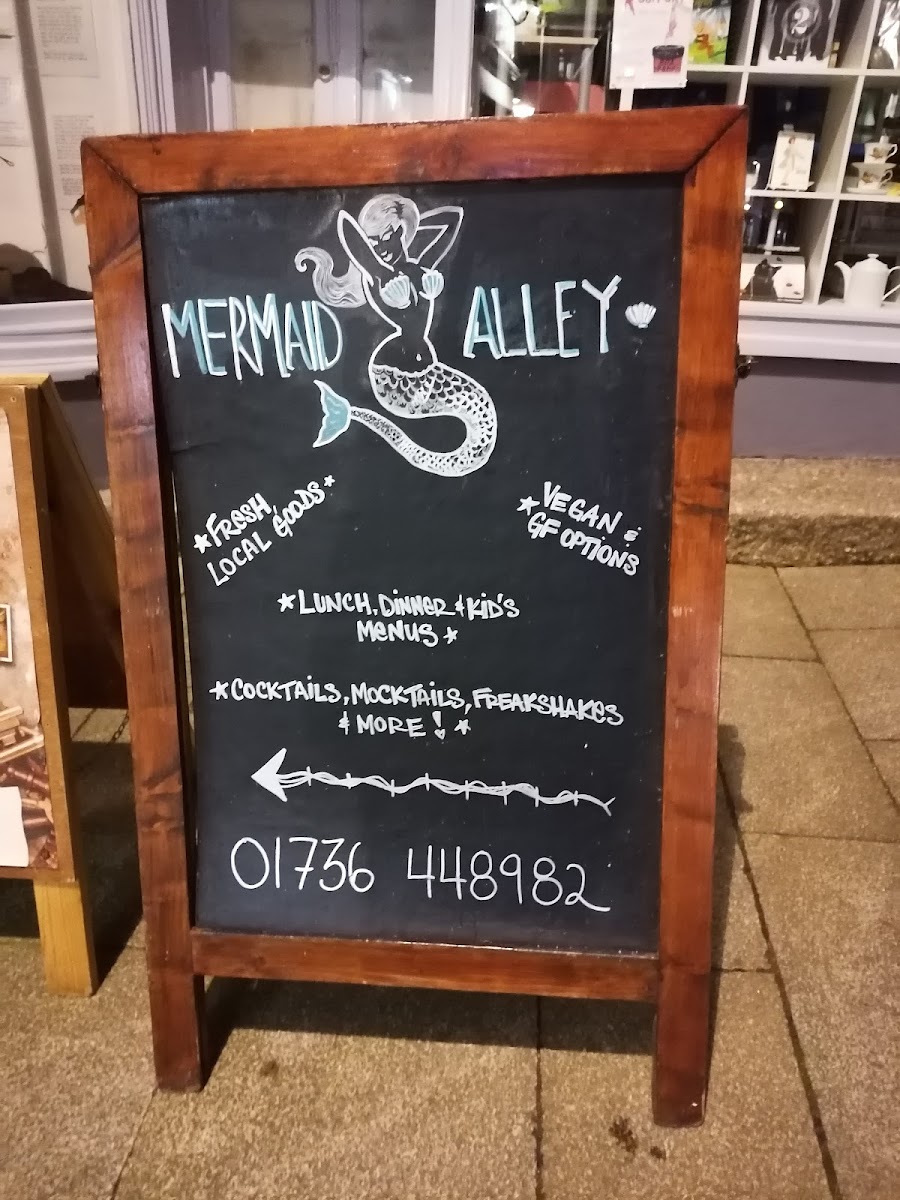 MERMAID ALLEY
*FRESH
LOCAL GOODS*
*VEGAN &
GF OPTIONS
*LUNCH, DINNER & KID'S
MENUS*
*COCKTAILS, MOCKTAILS, FREAKSHAKES
& MORE! *
01736 448982
2